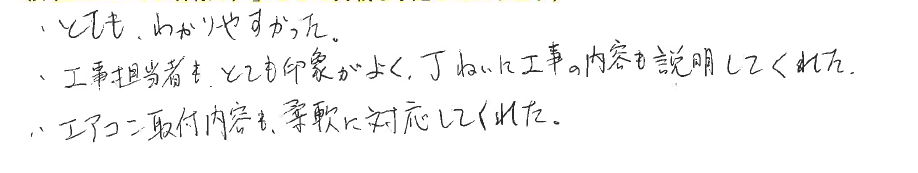 ・とても、わかりやすかった。
・工事担当者も、とても印象がよく、丁ねいに工事の内容も説明してくれた.
・エアコン取付内容も、柔軟に対応してくれた。